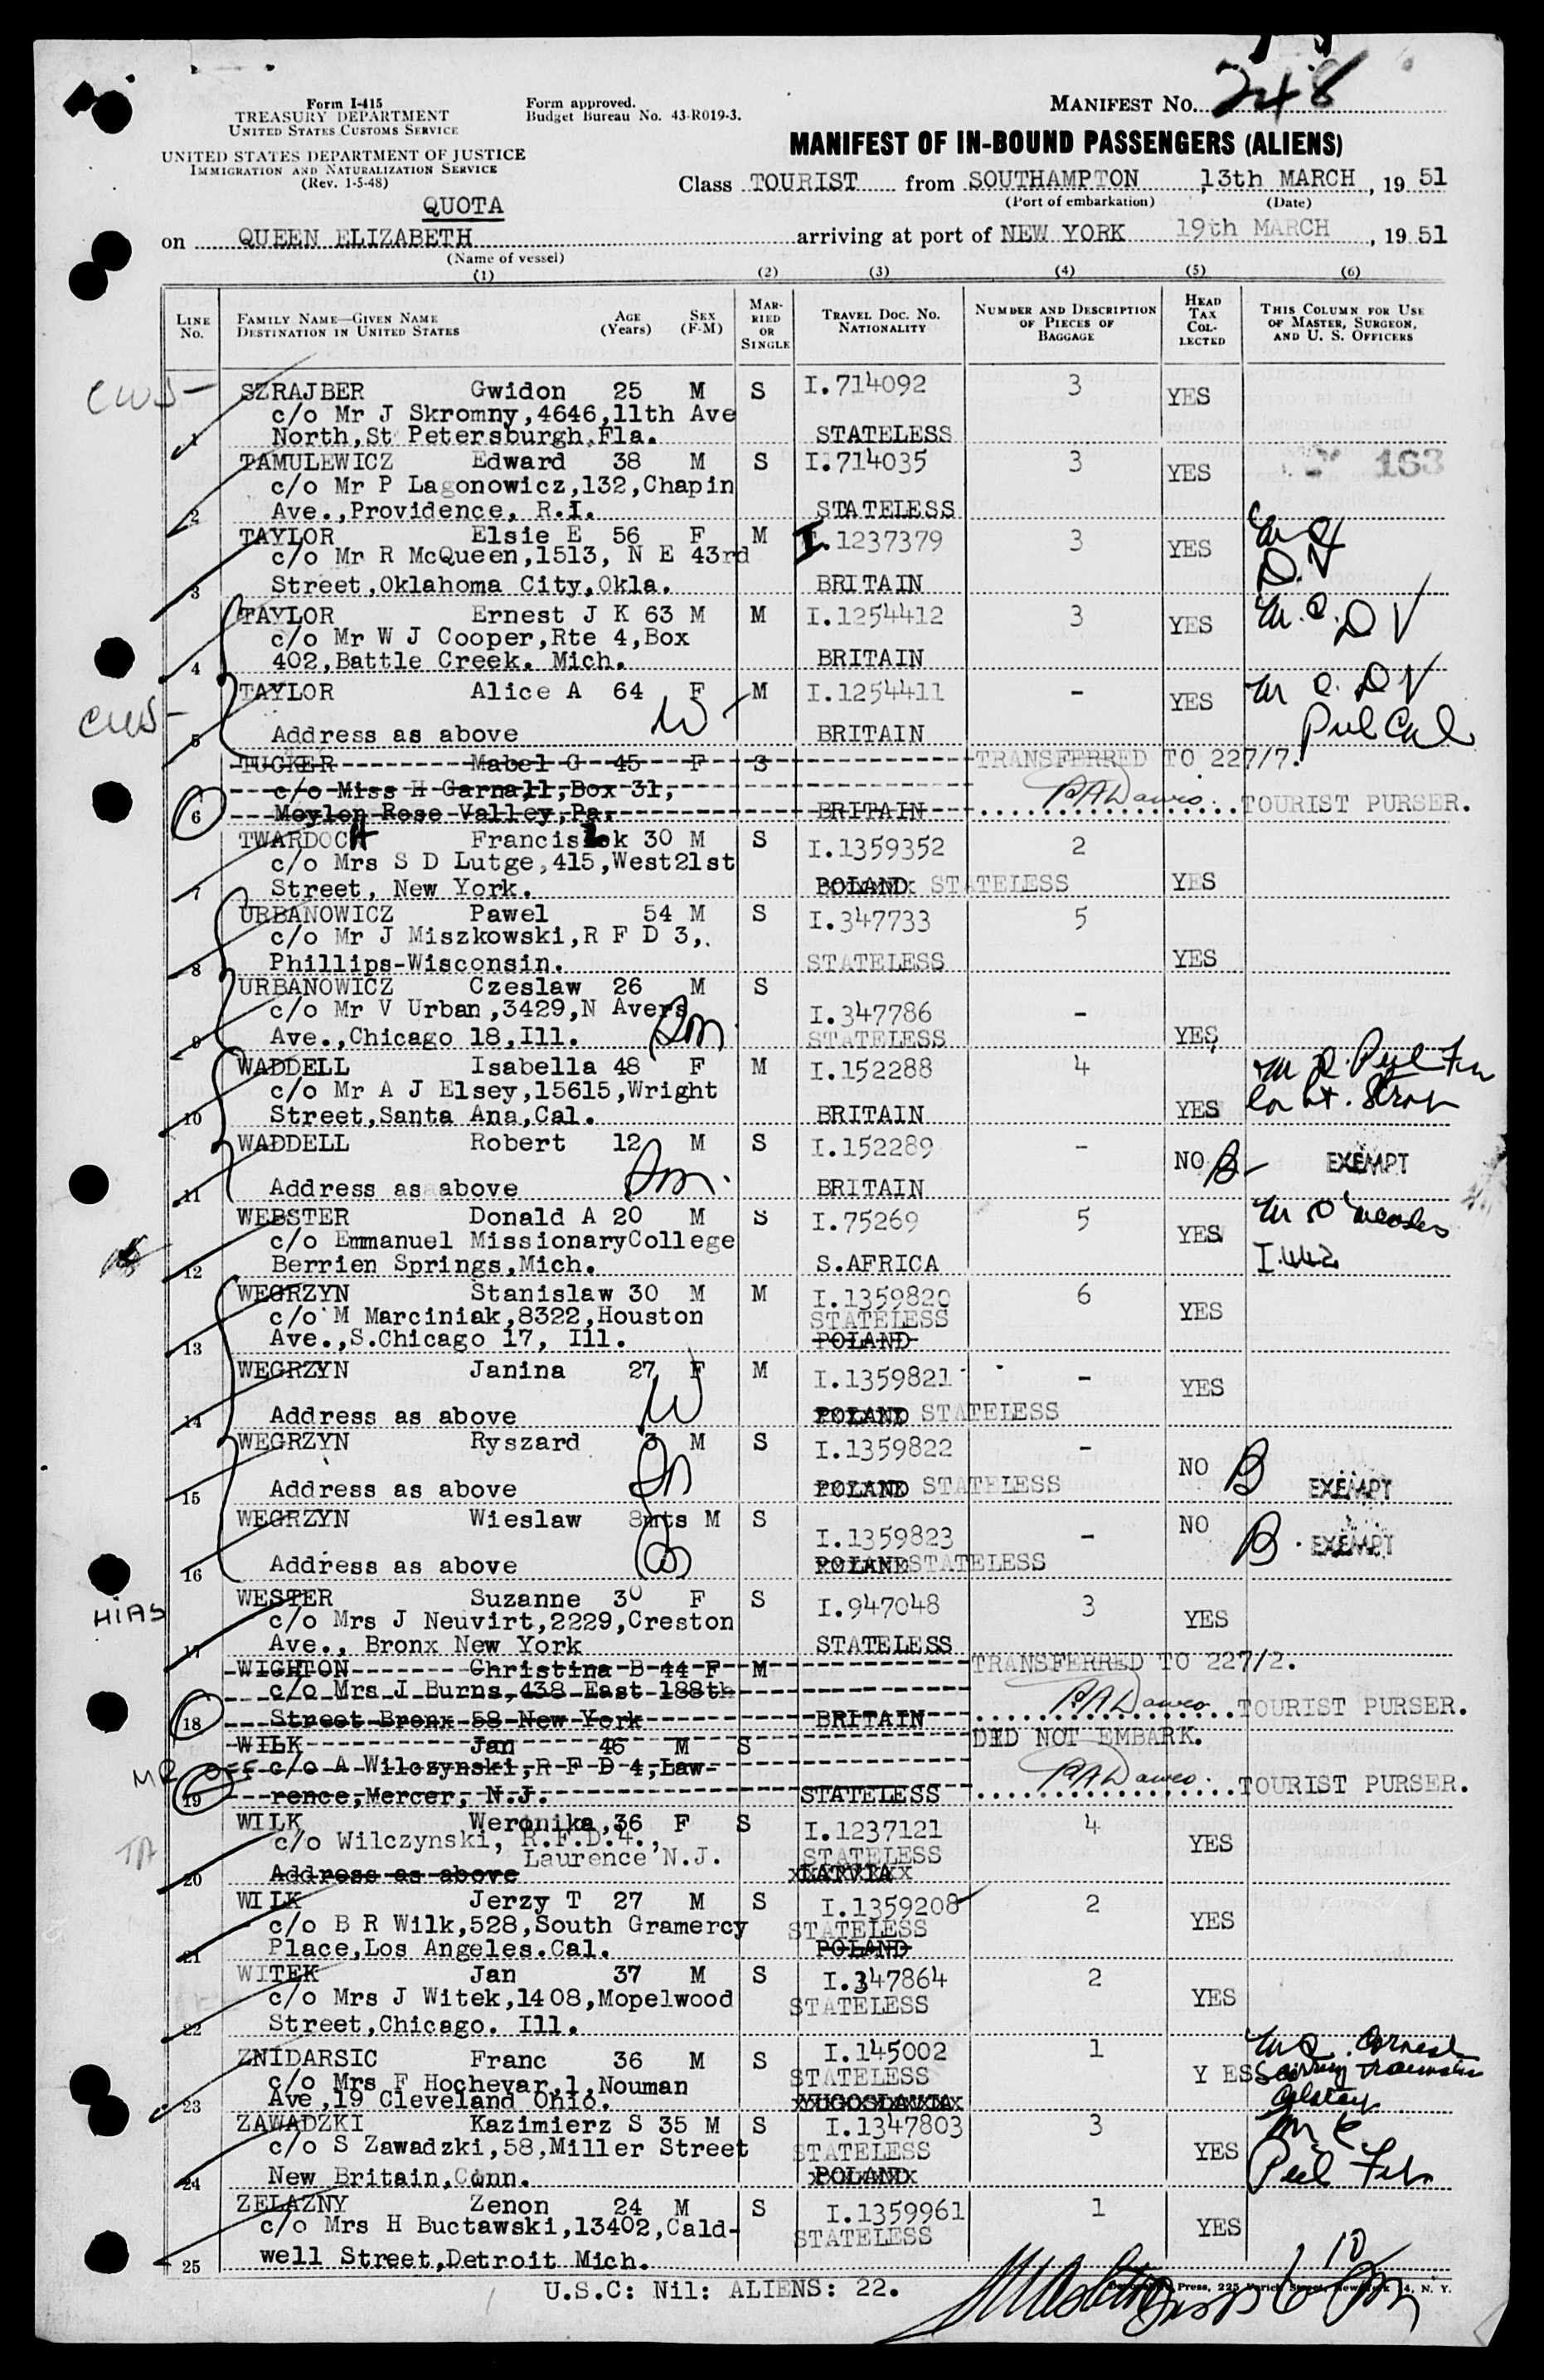 MANIFEST No. 248
Form I-415
TREASURY DEPARTMENT
UNITED STATES CUSTOMS SERVICE
Form approved.
Budget Bureau No. 43-R019-3.
UNITED STATES DEPARTMENT OF JUSTICE
IMMIGRATION AND NATURALIZATION SERVICE
(Rev. 1-5-48)
MANIFEST OF IN-BOUND PASSENGERS (ALIENS)
Class TOURIST from SOUTHAMPTON, 13th MARCH, 19 51
(Port of embarkation) (Date)
QUOTA
on QUEEN ELIZABETH arriving at port of NEW YORK 19th MARCH, 19 51
(Name of vessel)
(1) (2) (3) (4) (5) (6)
LINE No. FAMILY NAME—GIVEN NAME DESTINATION IN UNITED STATES AGE (Years) SEX (F-M) MARRIED OR SINGLE TRAVEL DOC. NO. NATIONALITY NUMBER AND DESCRIPTION OF PIECES OF BAGGAGE HEAD TAX COLLECTED THIS COLUMN FOR USE OF MASTER, SURGEON, AND U. S. OFFICERS
CWS- SZRAJBER Gwidon 25 M S I.714092 3 YES
c/o Mr J Skromny,4646,11th Ave
1 North,St Petersburgh,Fla. STATELESS
TAMULEWICZ Edward 38 M S I.714035 3 YES 163
c/o Mr P Lagonowicz,132,Chapin
2 Ave.,Providence, R.I. STATELESS
TAYLOR Elsie E 56 F M I.1237379 3 YES
c/o Mr R McQueen,1513, N E 43rd
3 Street,Oklahoma City,Okla. BRITAIN D.V
TAYLOR Ernest J K 63 M M I.1254412 3 YES DV
c/o Mr W J Cooper,Rte 4,Box
4 402,Battle Creek. Mich. BRITAIN
CWS- TAYLOR Alice A 64 F M I.1254411 - YES DV
W
5 Address as above BRITAIN
TUCKER Mabel G 45 F S TRANSFERRED TO 227/7.
c/o Miss H Garnall,Box 31,
6 Moylen Rose Valley,Pa. BRITAIN TOURIST PURSER.
TWARDOCH Franciszek 30 M S I.1359352 2
c/o Mrs S D Lutge,415,West21st
7 Street, New York. POLAND STATELESS YES
URBANOWICZ Pawel 54 M S I.347733 5
c/o Mr J Miszkowski,R F D 3,.
8 Phillips-Wisconsin. STATELESS YES
URBANOWICZ Czeslaw 26 M S
c/o Mr V Urban,3429,N Avers I.347786 -
9 Ave.,Chicago 18,Ill. STATELESS YES
WADDELL Isabella 48 F M I.152288 4
c/o Mr A J Elsey,15615,Wright
10 Street,Santa Ana,Cal. BRITAIN YES
WADDELL Robert 12 M S I.152289 - NO EXEMPT
11 Address as above BRITAIN
WEBSTER Donald A 20 M S I.75269 5 YES
c/o Emmanuel MissionaryCollege
12 Berrien Springs,Mich. S.AFRICA
WEGRZYN Stanislaw 30 M M I.1359820 6 YES
c/o M Marciniak,8322,Houston STATELESS
13 Ave.,S.Chicago 17, Ill. POLAND
WEGRZYN Janina 27 F M I.1359821 - YES
W
14 Address as above POLAND STATELESS
WEGRZYN Ryszard 3 M S I.1359822 - NO B EXEMPT
15 Address as above POLAND STATELESS
WEGRZYN Wieslaw 8mts M S I.1359823 - NO B. EXEMPT
16 Address as above POLAND STATELESS
HIAS WESTER Suzanne 30 F S I.947048 3 YES
c/o Mrs J Neuvirt,2229,Creston
17 Ave., Bronx New York STATELESS
WIGHTON Christina B 44 F M TRANSFERRED TO 227/2.
c/o Mrs J Burns,438 East 188th
18 Street Bronx 58 New York BRITAIN TOURIST PURSER.
WILK Jan 46 M S DID NOT EMBARK.
c/o A Wilczynski,R F D 4,Law-
19 rence,Mercer, N.J. STATELESS TOURIST PURSER.
WILK Weronika,36 F S I.1237121 4 YES
c/o Wilczynski, R.F.D.4., STATELESS
Laurence N.J.
20 Address as above LATVIA
WILK Jerzy T 27 M S I.1359208 2 YES
c/o B R Wilk,528,South Gramercy STATELESS
21 Place,Los Angeles.Cal. POLAND
WITEK Jan 37 M S I.347864 2 YES
c/o Mrs J Witek,1408,Mopelwood STATELESS
22 Street,Chicago. Ill.
ZNIDARSIC Franc 36 M S I.145002 1 Y ES
c/o Mrs F Hochevar,1,Nouman STATELESS
23 Ave,19 Cleveland Ohio. YUGOSLAVIA
ZAWADZKI Kazimierz S 35 M S I.1347803 3 YES
c/o S Zawadzki,58,Miller Street STATELESS
24 New Britain,Conn. POLAND
ZELAZNY Zenon 24 M S I.1359961 1 YES
c/o Mrs H Buctawski,13402,Cald- STATELESS
25 well Street,Detroit Mich.
U.S.C: Nil: ALIENS: 22.